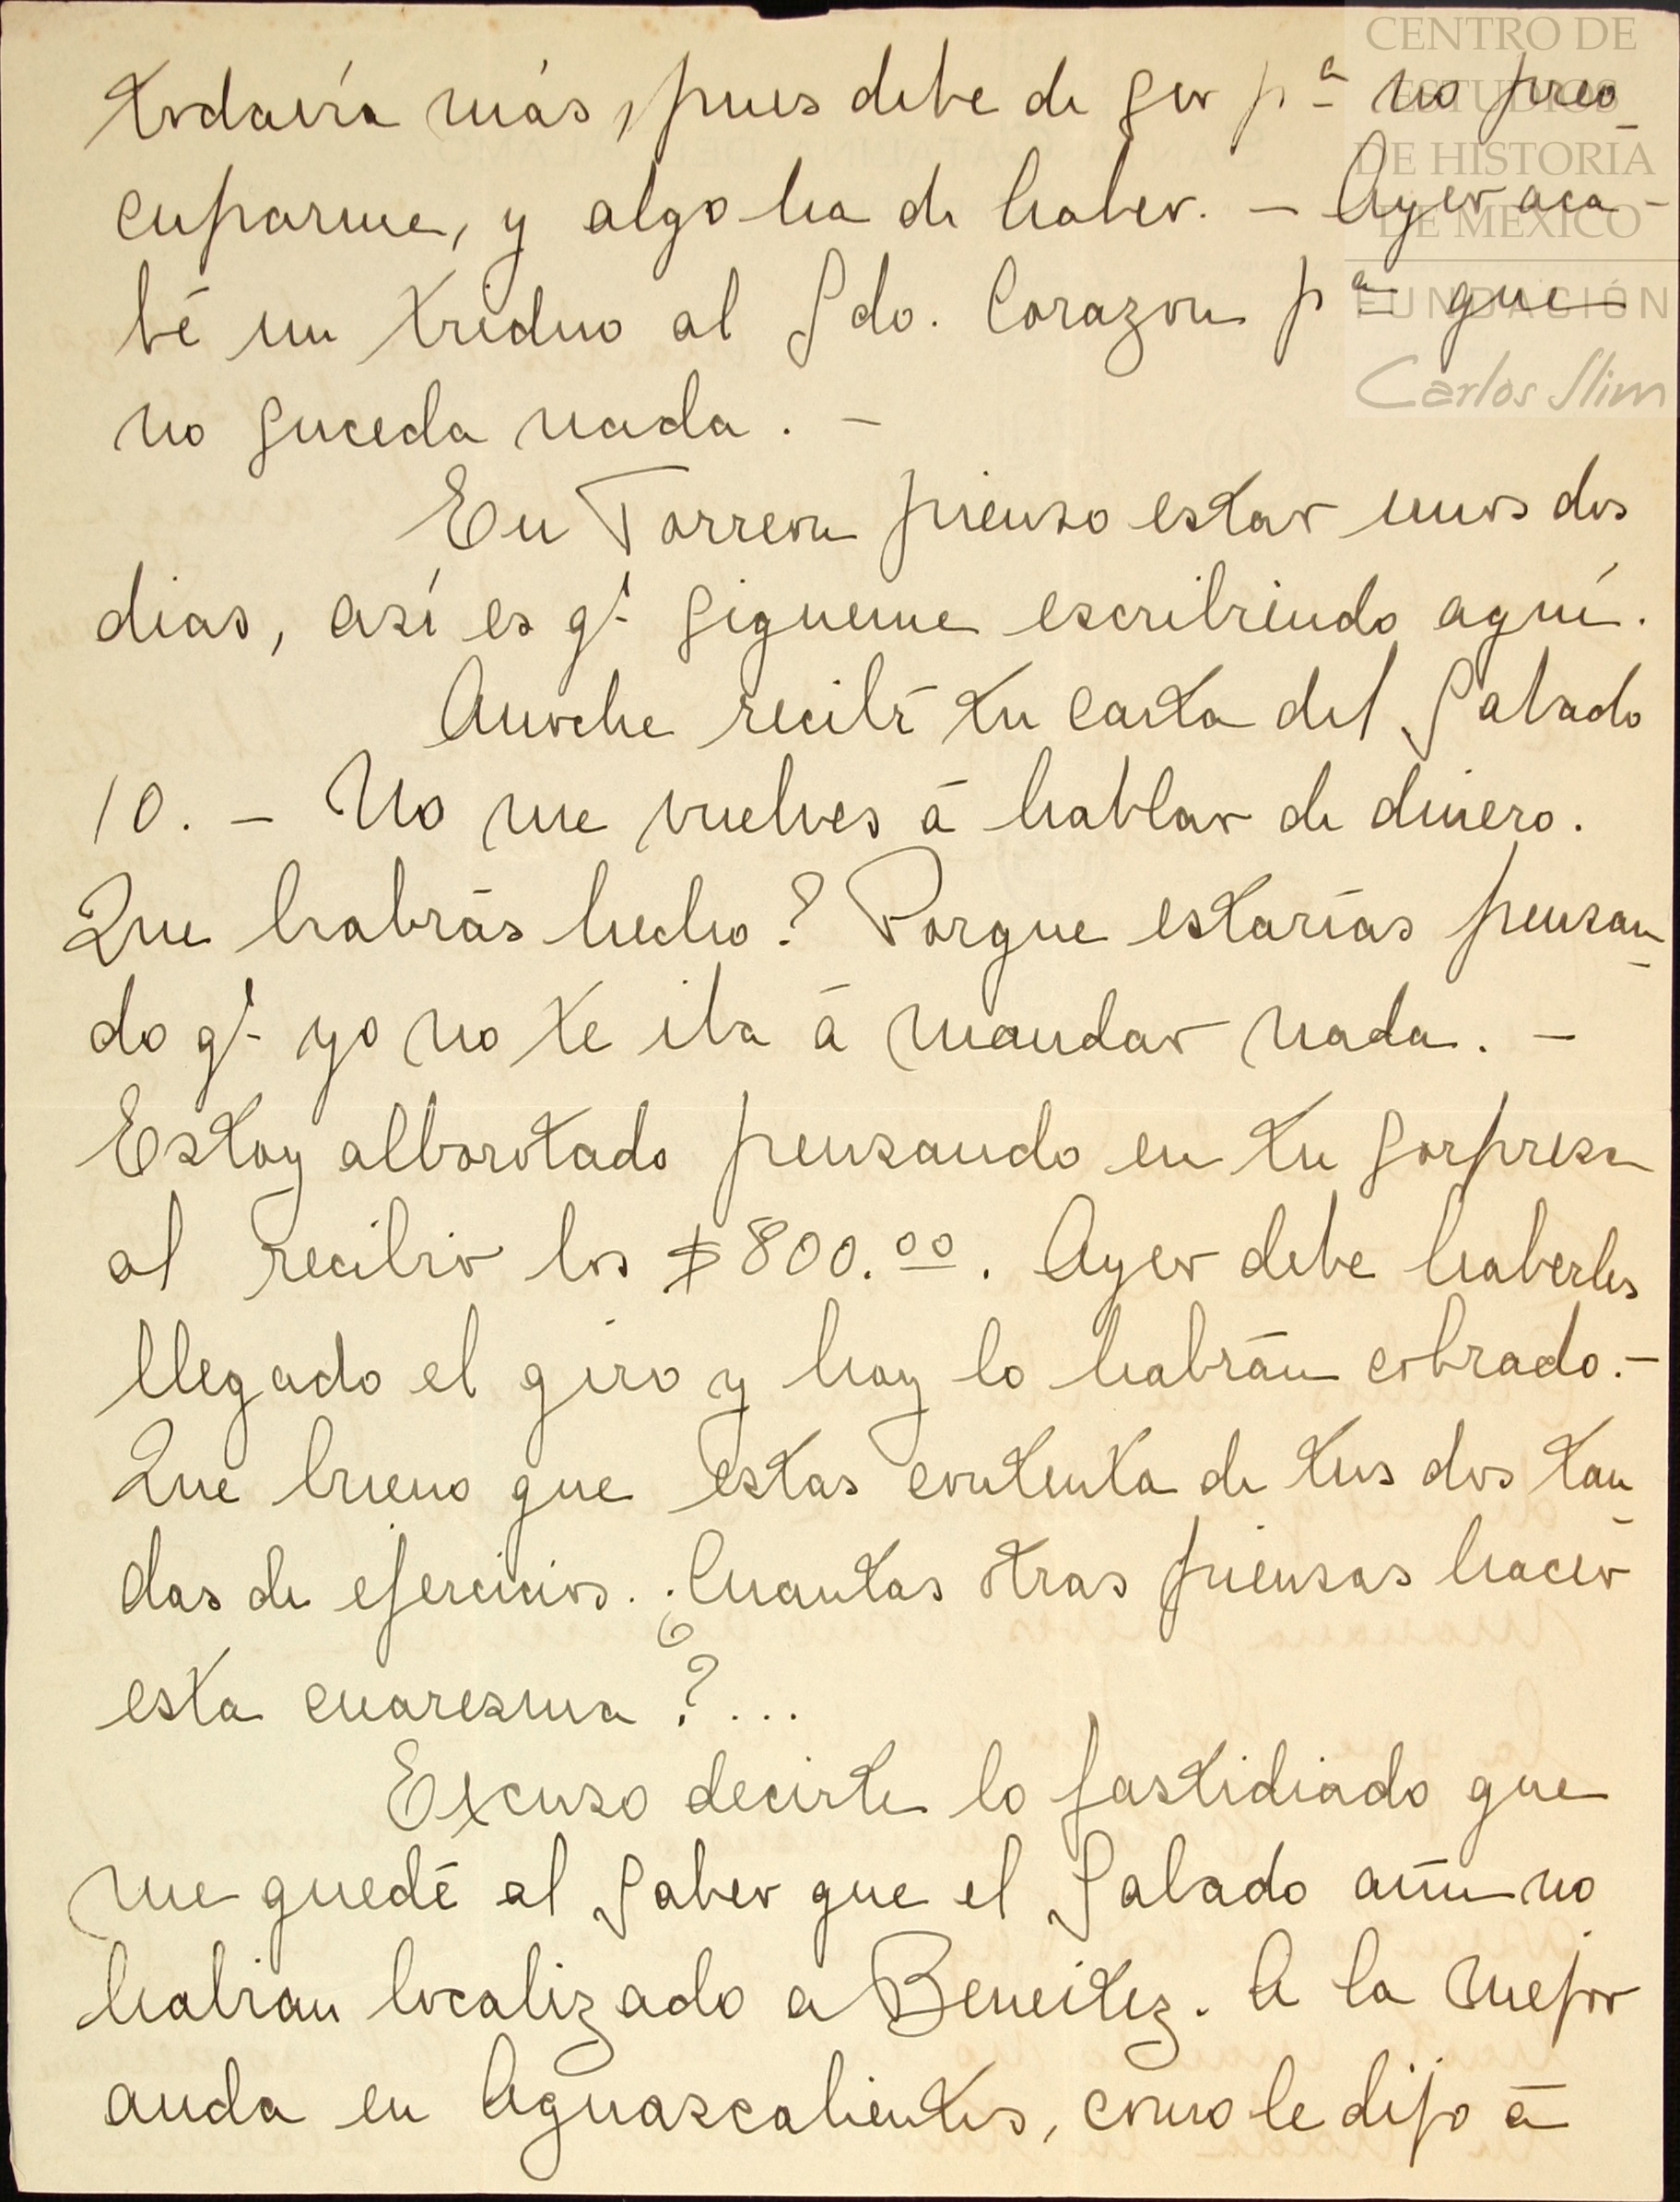 CENTRO DE
ESTUDIOS
DE HISTORIA
DE MÉXICO
FUNDACIÓN
Carlos Slim
todavía más, pues debe de ser pª no preo-
cuparme, y algo ha de haber. — Ayer aca-
bé un triduo al Sdo. Corazon pª que
no suceda nada. —
En Torreon pienso estar unos dos
dias, así es qᵉ sigueme escribiendo aquí.
Anoche recibí tu carta del Sabado
10. — No me vuelves á hablar de dinero.
Que habrás hecho? Porque estarías pensan-
do qᵉ yo no te iba á mandar nada. —
Estoy alborotado pensando en tu sorpresa
al recibir los $800.00. Ayer debe haberles
llegado el giro y hoy lo habrán cobrado. —
Que bueno que estas contenta de tus dos tan-
das de ejercicios. ¿Cuantas otras piensas hacer
esta cuaresma?...
Excuso decirte lo fastidiado que
me quedé al saber que el Sabado aún no
habian localizado a Beneitez. A la mejor
anda en Aguascalientes, como le dijo á